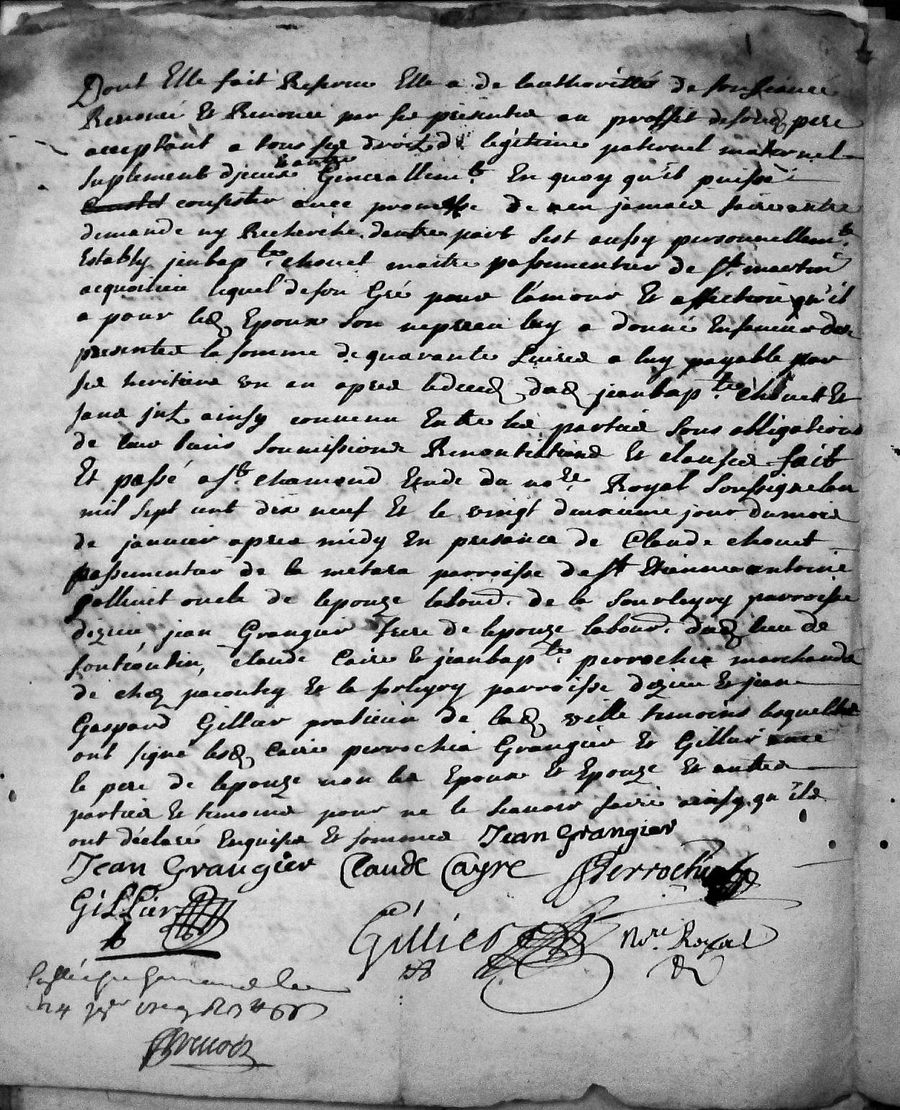 Dont Elle fait Reserve Elle a de lauthoritté de son fiancé
Renoncé et Renonce par ses presentes au proffit desond pere
acceptant a tous ses droitz de légitime paternel maternel
suplement dicelle et autres Generallemt. En quoy qu'il puisse
consister avec promesse de nen jamais faire autre
demande ny Recherche, dautre part sest aussy personnellemt.
Estably jeanbaptte. chouet maitre passementier de St. martin
acquoilieu lequel de son Gré pour lamour et affection qu'il
a pour led Epoux son nepveu luy a donné En faveur des
presentes la somme de quarante Livres a luy payable par
ses heritiers un an apres le deced dud jeanbaptte. chouet et
sans jnt. ainsy convenu Entre les parties sous obligations
de leur biens soumissions Renontiations et clauses fait
Et passé a St. chamond Etude du nore. Royal soussigné lan
mil sept cent dix neuf et le vingt deuxieme jour du mois
de janvier apres midy En presence de Claude chouet
passementier de la metara parroisse de St Etienne antoine
oncle de lepouze labour. de la parroisse
dizieu jean Grangier frere de lepouze labour. dud lieu de
claude Caire et jeanbaptte. perrochia marchands
de chez et la parroisse dizieu et jean
Gaspard Gillier praticien de lad ville temoins lesquelles
ont signé lesd Caire perrochia Grangier et Gillier avec
le pere de lepouze non les Epoux et Epouze et autres
parties et temoins pour ne le scavoir faire ainsy qu'ils
ont déclaré Enquis et sommés Jean Grangier
Jean Grangier Claude Cayre Perrochia
Gillier
Gillier Nore. Royal